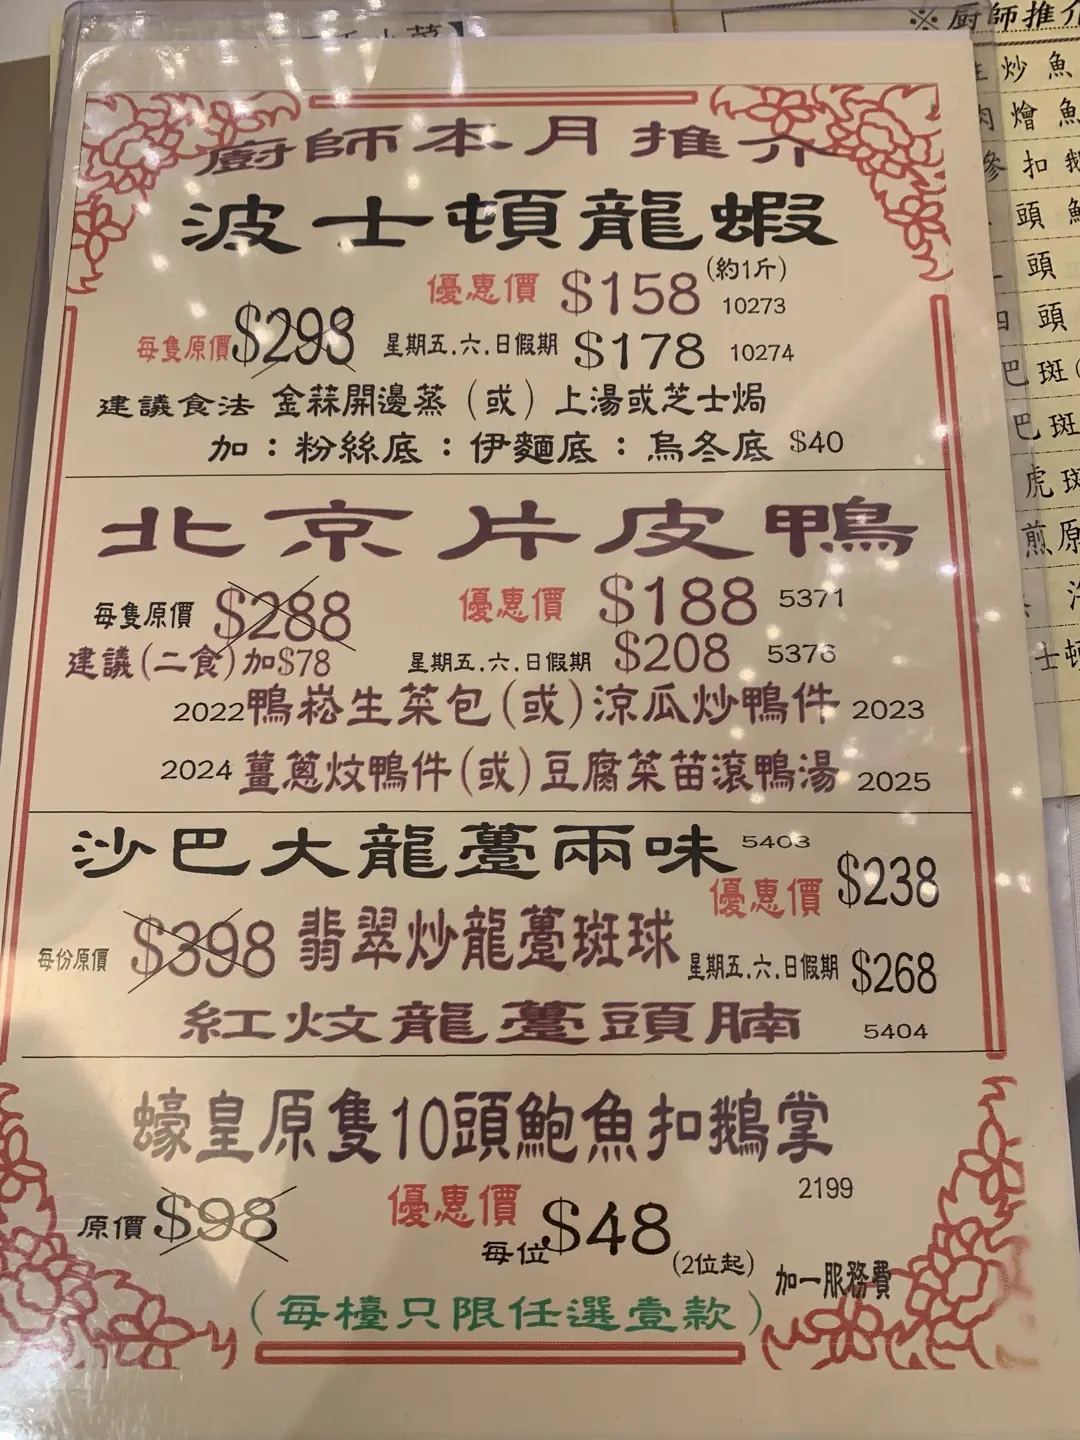 廚師本月推介
波士頓龍蝦
優惠價 $158 (約1斤) 10273
每隻原價 $298 星期五.六.日假期 $178 10274
建議食法 金蒜開邊蒸（或）上湯或芝士焗
加：粉絲底：伊麵底：烏冬底 $40
北京片皮鴨
每隻原價 $288 優惠價 $188 5371
建議(二食)加$78 星期五.六.日假期 $208 5376
2022 鴨崧生菜包(或)涼瓜炒鴨件 2023
2024 薑蔥炆鴨件(或)豆腐菜苗滾鴨湯 2025
沙巴大龍躉兩味 5403
優惠價 $238
每份原價 $398 翡翠炒龍躉斑球 星期五.六.日假期 $268
紅炆龍躉頭腩 5404
蠔皇原隻10頭鮑魚扣鵝掌
2199
原價 $98 優惠價 每位 $48 (2位起)
加一服務費
(每檯只限任選壹款)
※廚師推介
炒魚
燴魚
扣
頭
頭
頭
巴斑
巴斑
虎斑
煎原
士頓